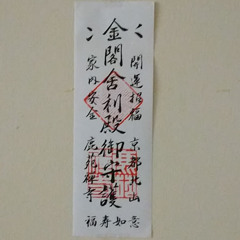 金閣舎利殿御守護
開運招福
京都北山
家内安全
鹿苑禅寺
如意
寿
福